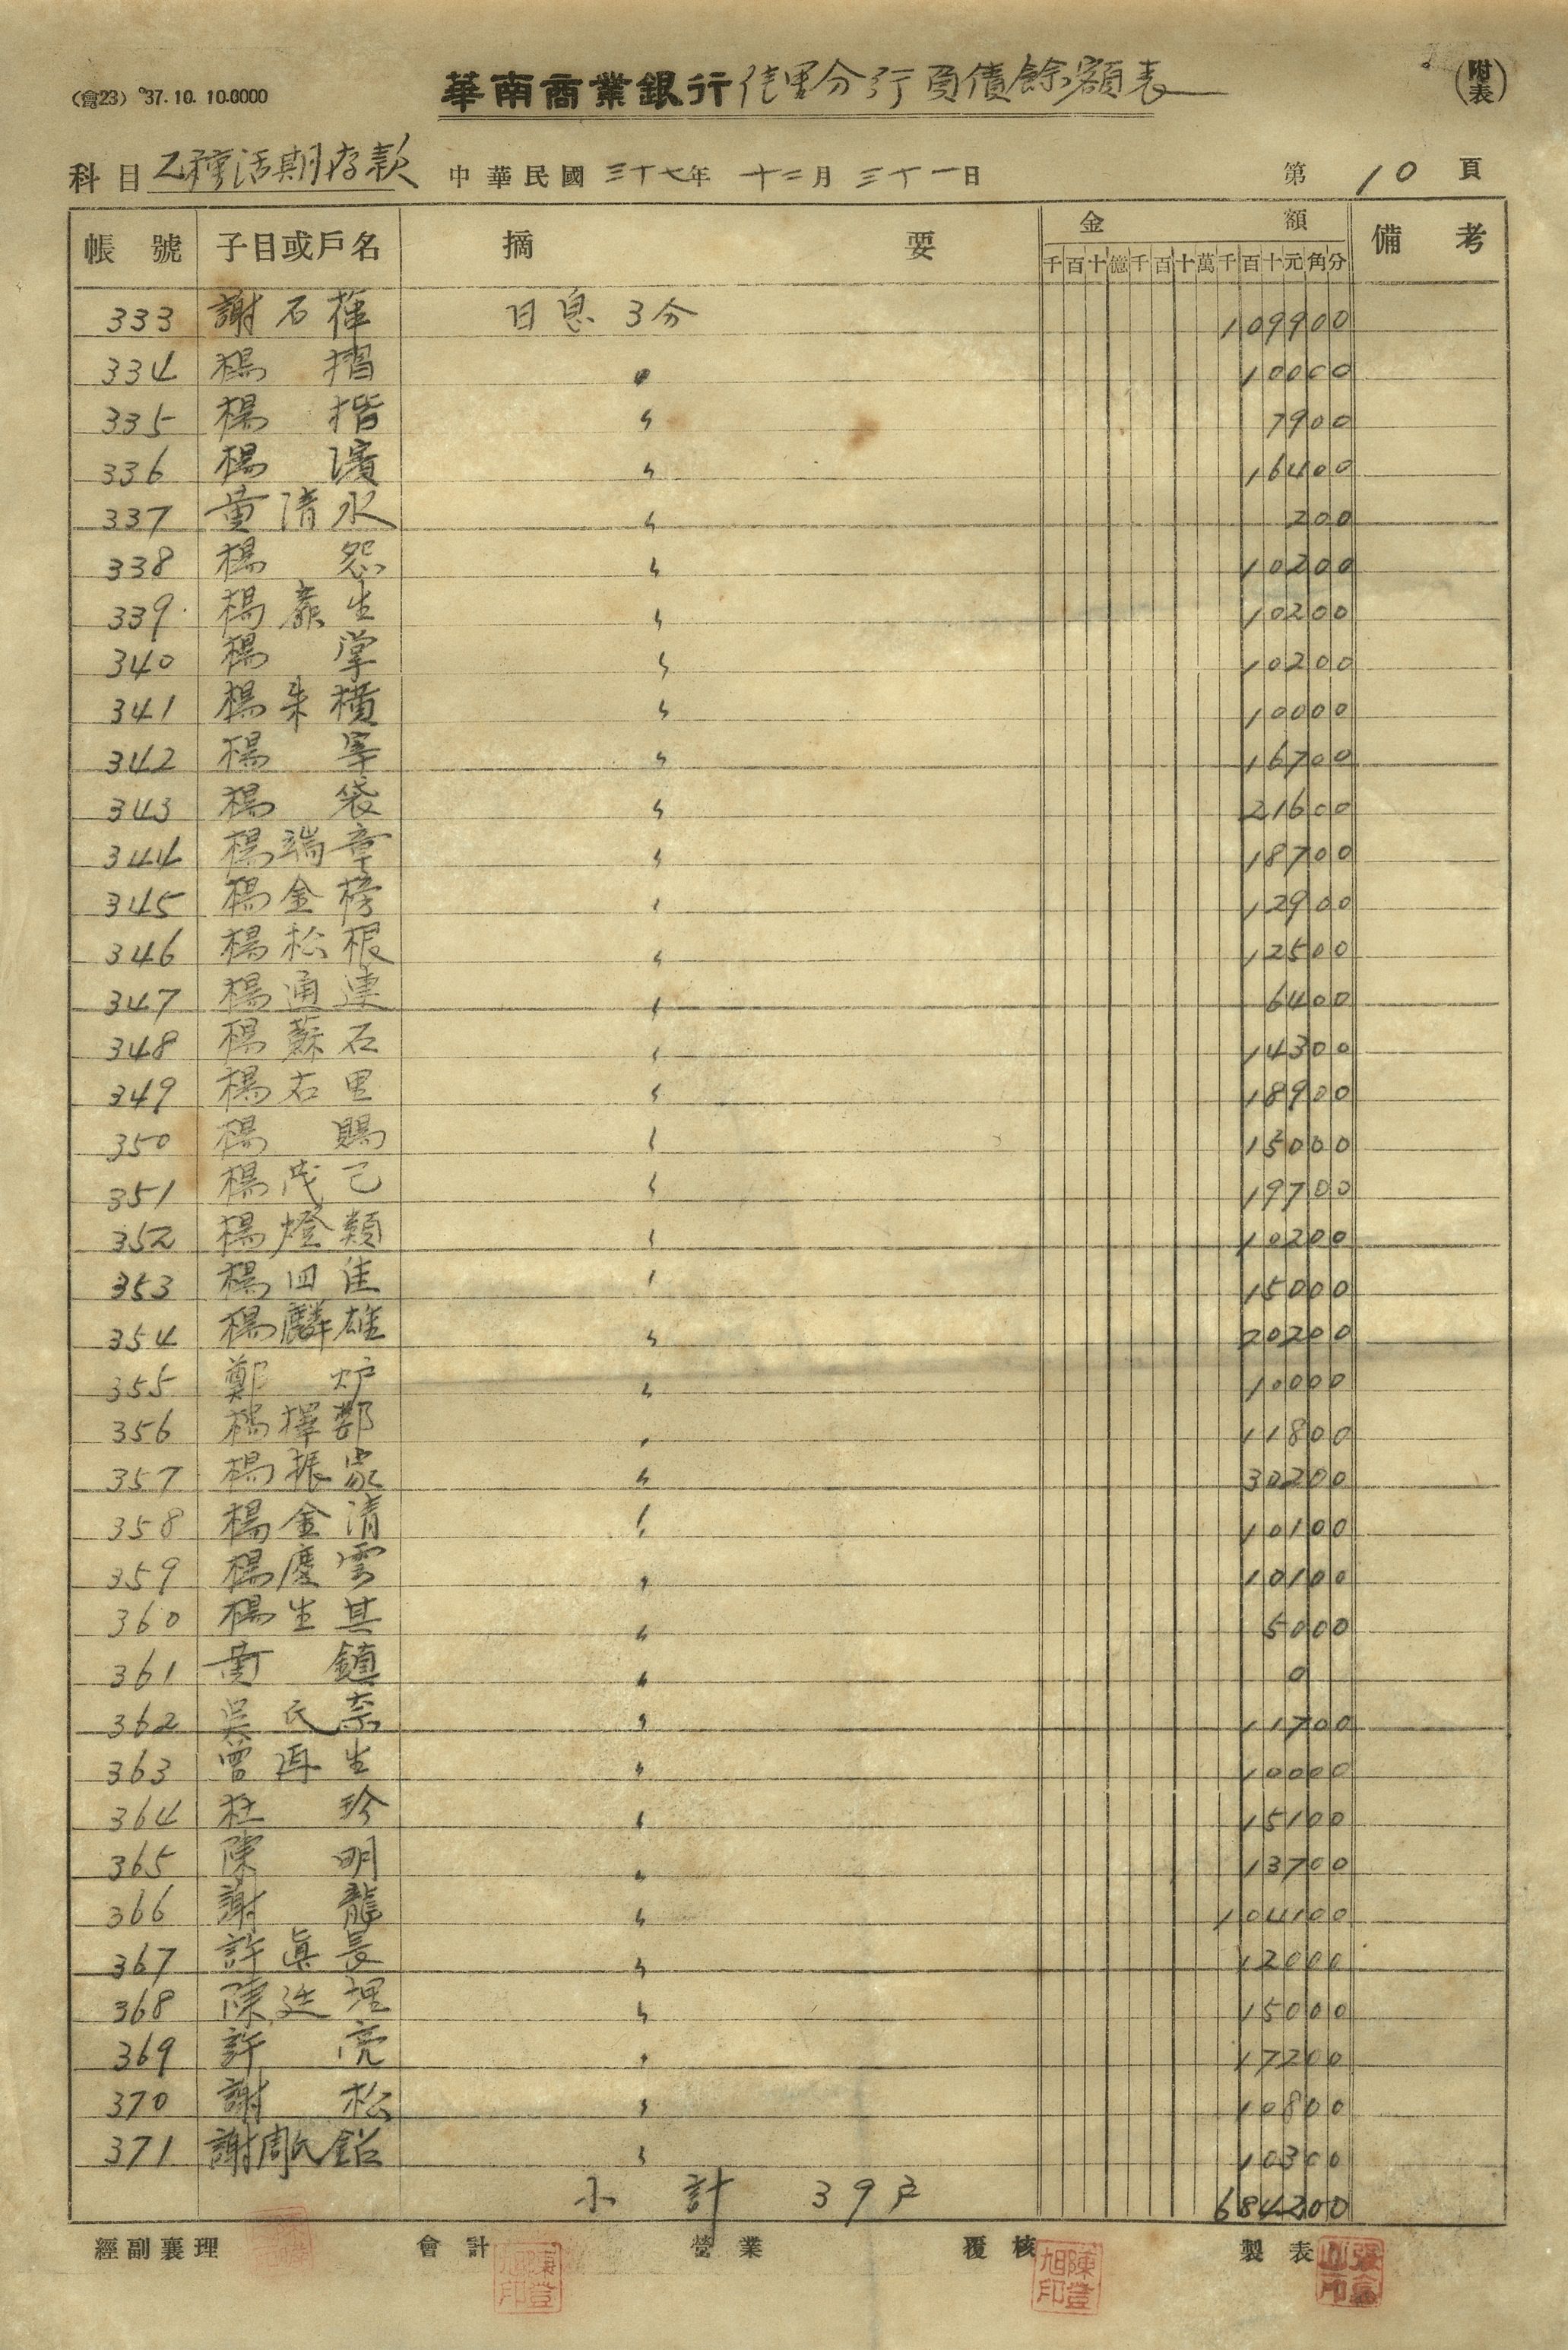 (會23) °37.10.10.6000
華南商業銀行佳里分行負債餘額表 (附表)
科目 乙種活期存款 中華民國三十七年 十二月 三十一日 第 10 頁
帳號 子目或戶名 摘要 金額 備考
千百十億千百十萬千百十元角分
333 謝石 日息 3分 109900
334 楊摺 〃 10000
335 楊揩 〃 7900
336 楊濱 〃 16400
337 黃清水 〃 200
338 楊怨 〃 10200
339 楊生 〃 10200
340 楊掌 〃 10200
341 楊朱横 〃 10000
342 楊 〃 16700
343 楊袋 〃 21600
344 楊瑞章 〃 18700
345 楊金榜 〃 12900
346 楊松根 〃 12500
347 楊通連 〃 6400
348 楊蘇石 〃 14300
349 楊右里 〃 18900
350 楊賜 〃 15000
351 楊茂己 〃 19700
352 楊燈類 〃 10200
353 楊四佳 〃 15000
354 楊麟雄 〃 20200
355 鄭炉 〃 10000
356 楊擇鄒 〃 11800
357 楊振家 〃 30200
358 楊金清 〃 10100
359 楊慶雲 〃 10100
360 楊生其 〃 5000
361 黃鎮 〃 0
362 吳氏奈 〃 11700
363 曾再生 〃 10000
364 杜珍 〃 15100
365 陳明 〃 13700
366 謝龍 〃 104100
367 許眞長 〃 12000
368 陳廷埋 〃 15000
369 許亮 〃 17200
370 謝松 〃 10800
371 謝周氏鉛 〃 10300
小計 39戶 684200
經副襄理 會計 營業 覆核 製表
陳登旭印 陳登旭印